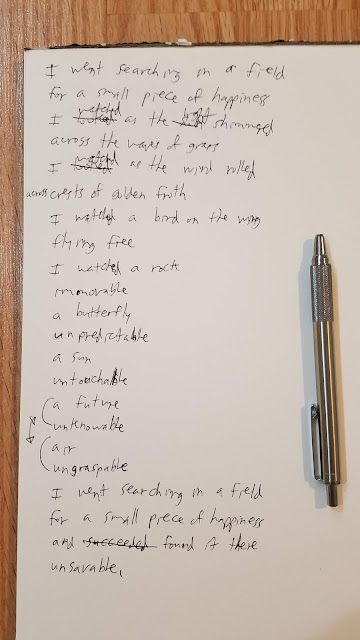 I went searching in a field
for a small piece of happiness
I watched as the light shimmered
across the waves of grass
I watched as the wind rolled
across crests of golden froth
I watched a bird on the wing
flying free
I watched a rock
immovable
a butterfly
unpredictable
a sun
untouchable
a future
unknowable
air
ungraspable
I went searching in a field
for a small piece of happiness
and succeeded found it there
unsavable,